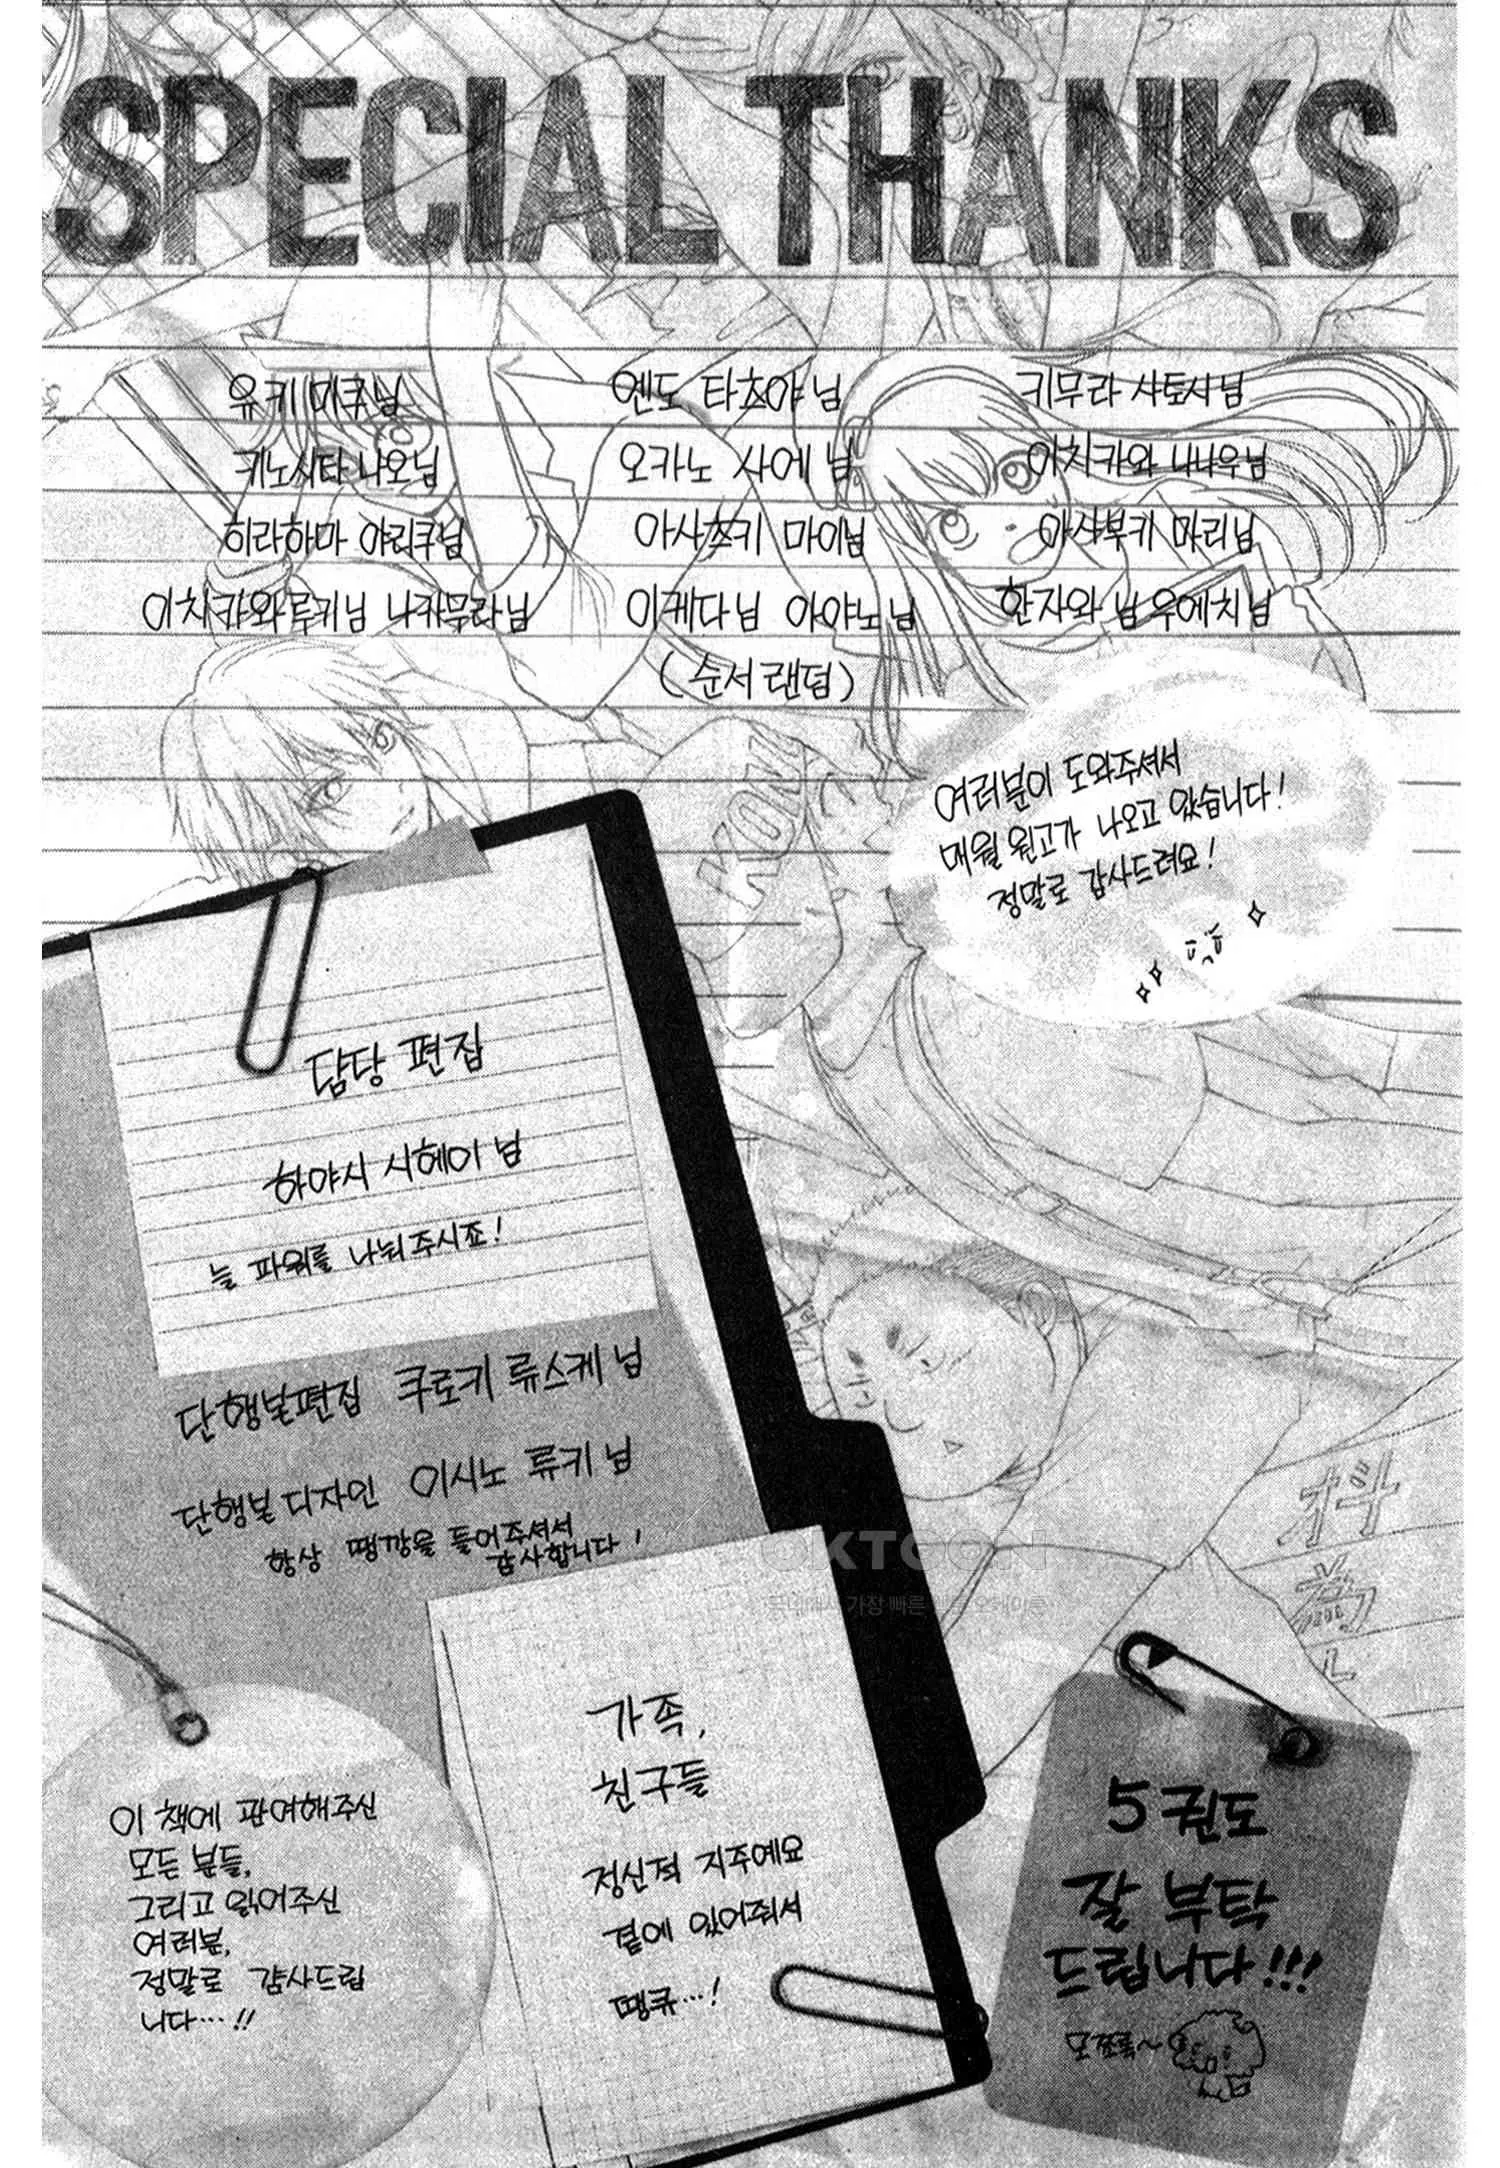 SPECIAL THANKS
유키 미쿠님 엔도 타츠야 님 키무라 사토시님
키노시타 나오님 오카노 사에 님 이치카와 나나우님
히라하마 야리쿠님 아사츠키 마이님 아사부키 마리님
이치카와루키님 나카무라님 이케다님 아야노님 한자와 님 우에치님
(순서 랜덤)
KOMU
여러분이 도와주셔서
매월 원고가 나오고 있습니다!
정말로 감사드려요!
담당 편집
하야시 시헤이 님
늘 파워를 나눠주시죠!
단행본편집 쿠로키 류스케 님
단행본 디자인 이시노 류키 님
항상 땡깡을 들어주셔서
감사합니다!
OKTOON
국내에서 가장 빠른 웹툰 오케이툰
가족,
친구들
정신적 지주예요
곁에 있어줘서
땡큐…!
이 책에 관여해주신
모든 분들,
그리고 읽어주신
여러분,
정말로 감사드립
니다…!!
5권도
잘 부탁
드립니다!!!
모쪼록~